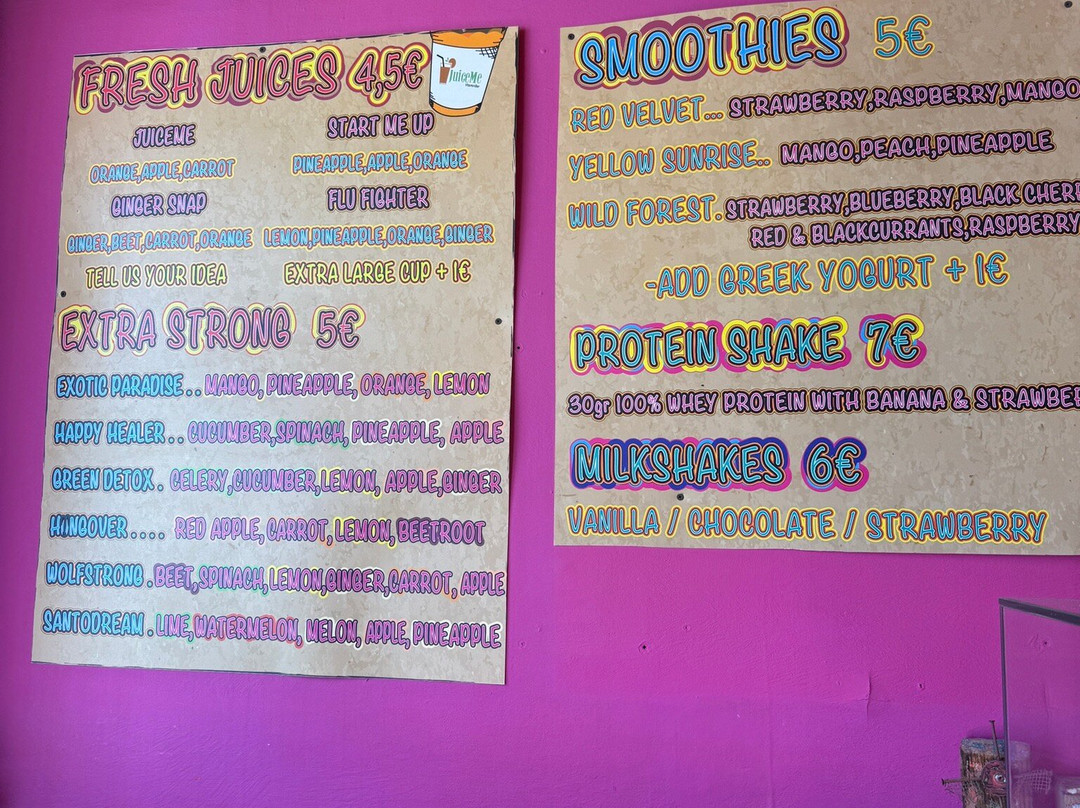 FRESH JUICES 4,5€
JuiceMe
JUICEME
START ME UP
ORANGE,APPLE,CARROT
PINEAPPLE,APPLE,ORANGE
GINGER SNAP
FLU FIGHTER
GINGER,BEET,CARROT,ORANGE
LEMON,PINEAPPLE,ORANGE,GINGER
TELL US YOUR IDEA
EXTRA LARGE CUP + 1€
EXTRA STRONG 5€
EXOTIC PARADISE . . MANGO, PINEAPPLE, ORANGE, LEMON
HAPPY HEALER . . CUCUMBER,SPINACH, PINEAPPLE, APPLE
GREEN DETOX . CELERY,CUCUMBER,LEMON, APPLE,GINGER
HANGOVER . . . . RED APPLE, CARROT, LEMON, BEETROOT
WOLFSTRONG . BEET,SPINACH,LEMON,GINGER,CARROT, APPLE
SANTODREAM . LIME,WATERMELON, MELON, APPLE, PINEAPPLE
SMOOTHIES 5€
RED VELVET... STRAWBERRY,RASPBERRY,MANGO
YELLOW SUNRISE.. MANGO,PEACH,PINEAPPLE
WILD FOREST. STRAWBERRY,BLUEBERRY,BLACK CHER
RED & BLACKCURRANTS,RASPBERRY
-ADD GREEK YOGURT + 1€
PROTEIN SHAKE 7€
30gr 100% WHEY PROTEIN WITH BANANA & STRAWBER
MILKSHAKES 6€
VANILLA / CHOCOLATE / STRAWBERRY